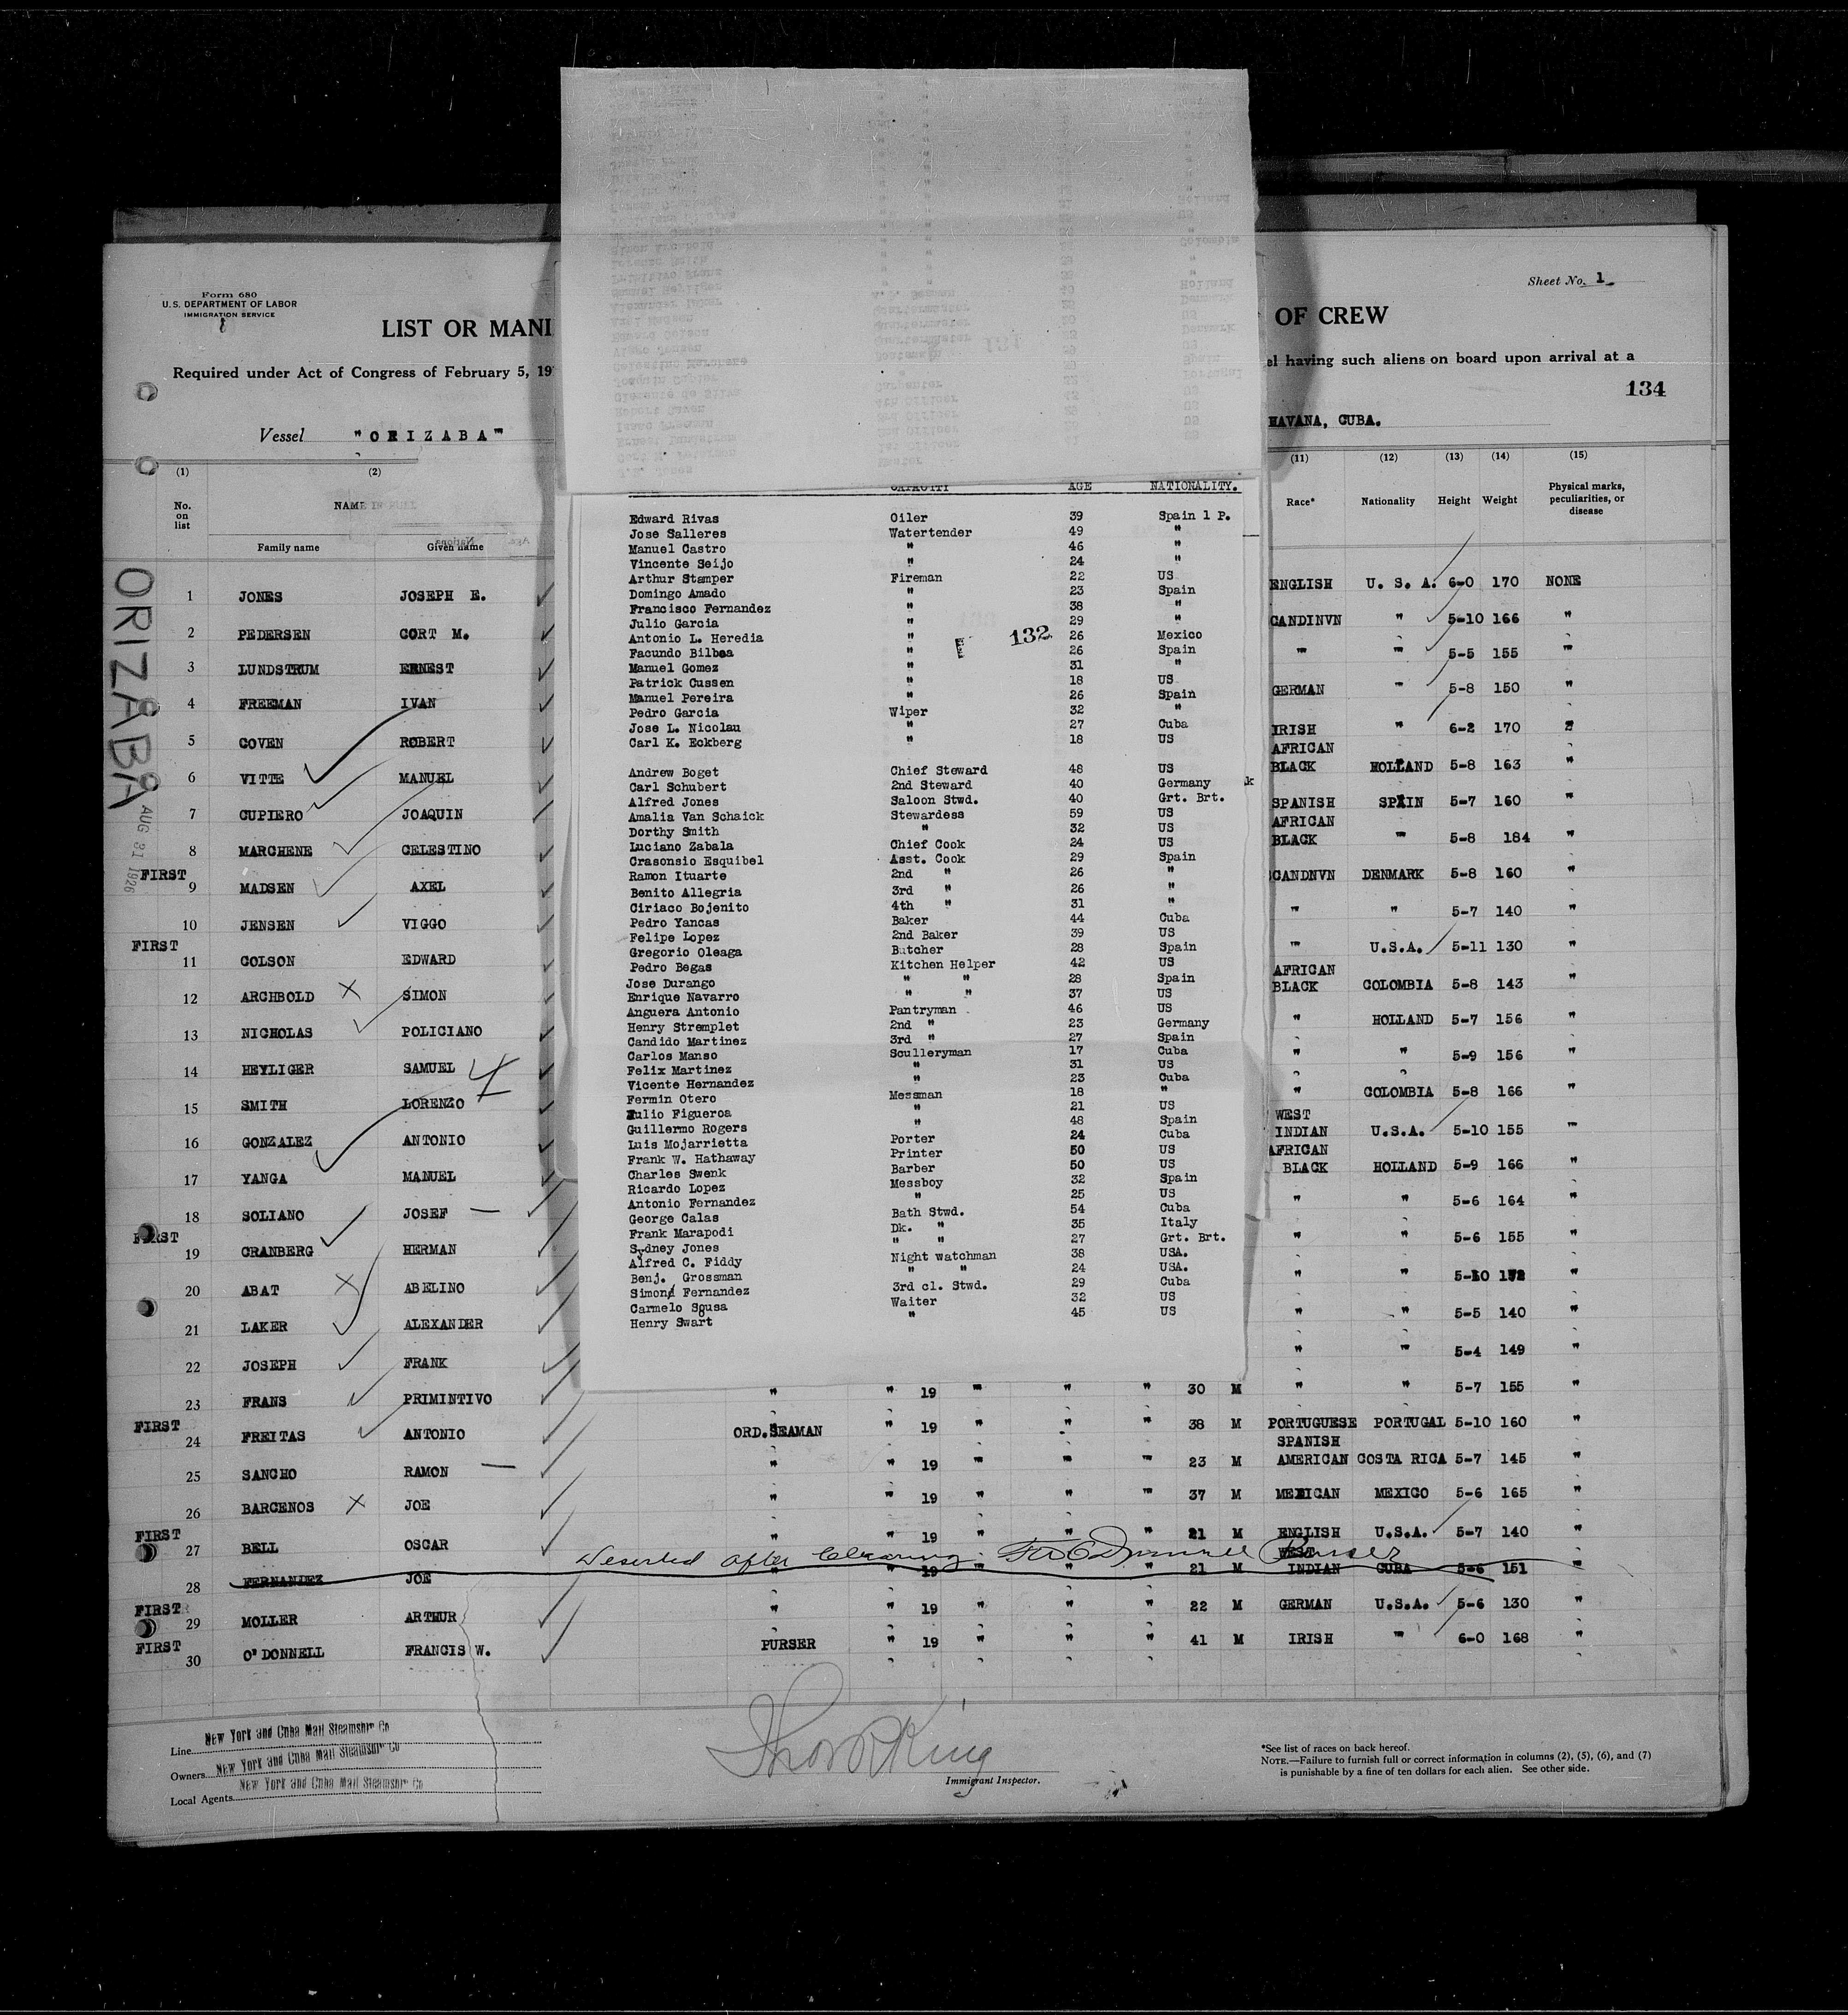 Form 680
U. S. DEPARTMENT OF LABOR
IMMIGRATION SERVICE
Sheet No. 1
LIST OR MANI
OF CREW
Required under Act of Congress of February 5, 19
el having such aliens on board upon arrival at a
134
Vessel "ORIZABA"
HAVANA, CUBA.
(1) (2) (11) (12) (13) (14) (15)
No. on list
NAME IN FULL
Family name Given name
Race* Nationality Height Weight Physical marks, peculiarities, or disease
ORIZABA
AUG 31 1926
1 JONES JOSEPH E. ENGLISH U. S. A. 6-0 170 NONE
2 PEDERSEN CORT M. CANDINVN " 5-10 166 "
3 LUNDSTRUM ERNEST " " 5-5 155 "
4 FREEMAN IVAN GERMAN " 5-8 150 "
5 COVEN ROBERT IRISH " 6-2 170
6 VITTE MANUEL AFRICAN BLACK HOLLAND 5-8 163 "
7 CUPIERO JOAQUIN SPANISH SPAIN 5-7 160 "
8 MARCHENE CELESTINO AFRICAN BLACK " 5-8 184 "
FIRST
9 MADSEN AXEL CANDNVN DENMARK 5-8 160 "
10 JENSEN VIGGO " " 5-7 140 "
FIRST
11 COLSON EDWARD " U.S.A. 5-11 130 "
12 ARCHBOLD SIMON AFRICAN BLACK COLOMBIA 5-8 143 "
13 NICHOLAS POLICIANO " HOLLAND 5-7 156 "
14 HEYLIGER SAMUEL " " 5-9 156 "
15 SMITH LORENZO " COLOMBIA 5-8 166 "
16 GONZALEZ ANTONIO WEST INDIAN U.S.A. 5-10 155 "
17 YANGA MANUEL AFRICAN BLACK HOLLAND 5-9 166 "
18 SOLIANO JOSEF " " 5-6 164 "
FIRST
19 CRANBERG HERMAN " " 5-6 155 "
20 ABAT ABELINO " " 5-10 "
21 LAKER ALEXANDER " " 5-5 140 "
22 JOSEPH FRANK " " 5-4 149 "
23 FRANS PRIMINTIVO " " 19 " " " 30 M " " 5-7 155 "
FIRST
24 FREITAS ANTONIO ORD.SEAMAN " 19 " " " 38 M PORTUGUESE PORTUGAL 5-10 160 "
25 SANCHO RAMON " " 19 " " " 23 M SPANISH AMERICAN COSTA RICA 5-7 145 "
26 BARCENOS JOE " " 19 " " " 37 M MEXICAN MEXICO 5-6 165 "
FIRST
27 BELL OSCAR " " 19 " " " 21 M ENGLISH U.S.A. 5-7 140 "
Deserted after Clearing FWO'Donnell Purser
28 FERNANDEZ JOE " " 19 " " " 21 M WEST INDIAN CUBA 5-6 151 "
FIRST
29 MOLLER ARTHUR " " 19 " " " 22 M GERMAN U.S.A. 5-6 130 "
FIRST
30 O'DONNELL FRANCIS W. PURSER " 19 " " " 41 M IRISH " 6-0 168 "
CAPACITY AGE NATIONALITY.
Edward Rivas Oiler 39 Spain 1 P.
Jose Salleres Watertender 49 "
Manuel Castro " 46 "
Vincente Seijo " 24 "
Arthur Stamper Fireman 22 US
Domingo Amado " 23 Spain
Francisco Fernandez " 38 "
Julio Garcia " 29 "
Antonio L. Heredia " 26 Mexico
132
Facundo Bilbaa " 26 Spain
Manuel Gomez " 31 "
Patrick Cussen " 18 US
Manuel Pereira " 26 Spain
Pedro Garcia Wiper 32 "
Jose L. Nicolau " 27 Cuba
Carl K. Eckberg " 18 US
Andrew Boget Chief Steward 48 US
Carl Schubert 2nd Steward 40 Germany
Alfred Jones Saloon Stwd. 40 Grt. Brt.
Amalia Van Schaick Stewardess 59 US
Dorthy Smith " 32 US
Luciano Zabala Chief Cook 24 US
Crasonsio Esquibel Asst. Cook 29 Spain
Ramon Ituarte 2nd " 26 "
Benito Allegria 3rd " 26 "
Ciriaco Bojenito 4th " 31 "
Pedro Yancas Baker 44 Cuba
Felipe Lopez 2nd Baker 39 US
Gregorio Oleaga Butcher 28 Spain
Pedro Begas Kitchen Helper 42 US
Jose Durango " " 28 Spain
Enrique Navarro " " 37 US
Anguera Antonio Pantryman 46 US
Henry Stremplet 2nd " 23 Germany
Candido Martinez 3rd " 27 Spain
Carlos Manso Sculleryman 17 Cuba
Felix Martinez " 31 US
Vicente Hernandez " 23 Cuba
Fermin Otero Messman 18 "
Julio Figueroa " 21 US
Guillermo Rogers " 48 Spain
Luis Mojarrietta Porter 24 Cuba
Frank W. Hathaway Printer 50 US
Charles Swenk Barber 50 US
Ricardo Lopez Messboy 32 Spain
Antonio Fernandez " 25 US
George Calas Bath Stwd. 54 Cuba
Frank Marapodi Dk. " 35 Italy
Sydney Jones " " 27 Grt. Brt.
Alfred C. Fiddy Night watchman 38 USA.
Benj. Grossman " " 24 USA.
Simon Fernandez 3rd cl. Stwd. 29 Cuba
Carmelo Sousa Waiter 32 US
Henry Swart " 45 US
Line New York and Cuba Mail Steamship Co
Owners New York and Cuba Mail Steamship Co
Local Agents New York and Cuba Mail Steamship Co
Immigrant Inspector.
*See list of races on back hereof.
NOTE.—Failure to furnish full or correct information in columns (2), (5), (6), and (7)
is punishable by a fine of ten dollars for each alien. See other side.